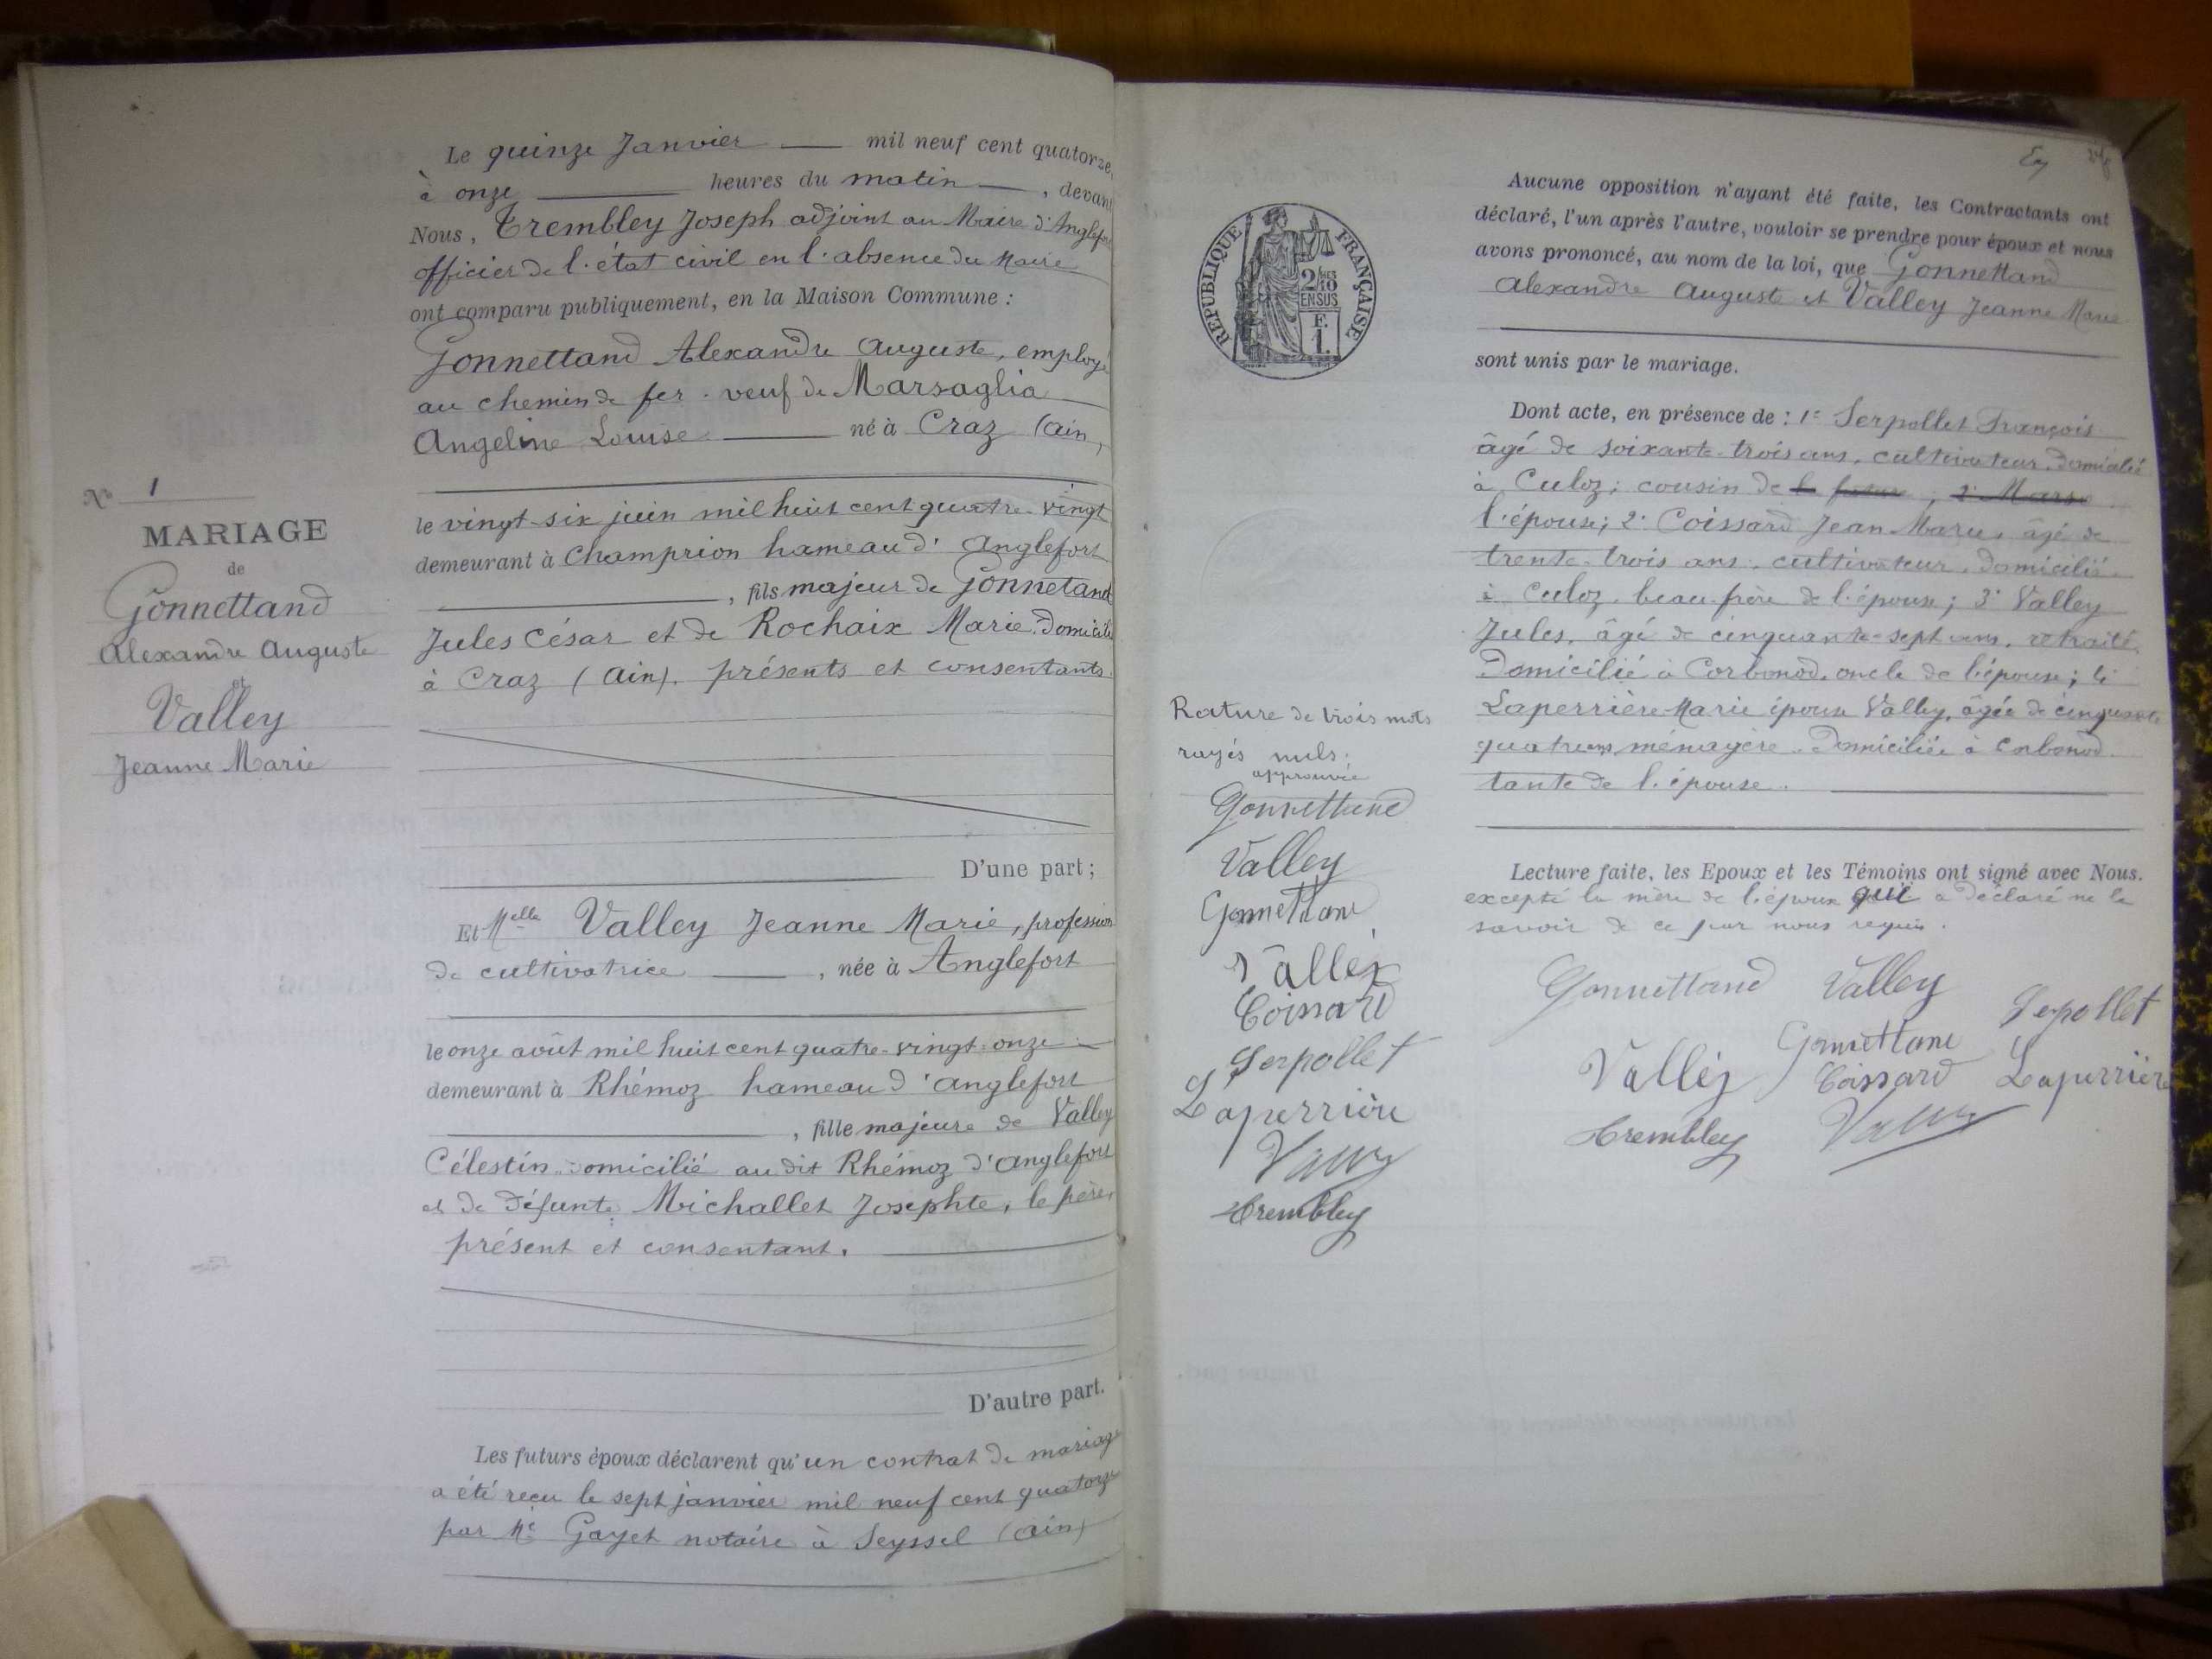 N° 1
MARIAGE
de
Gonnettand
Alexandre Auguste
et
Valley
Jeanne Marie
Le quinze Janvier mil neuf cent quatorze,
à onze heures du matin, devant
Nous, Trembley Joseph adjoint au Maire d'Anglefort
officier de l'état civil en l'absence du Maire
ont comparu publiquement, en la Maison Commune :
Gonnettand Alexandre Auguste, employé
au chemin de fer. veuf de Marsaglia
Angeline Louise né à Craz (Ain,
le vingt-six juin mil huit cent quatre-vingt
demeurant à Champrion hameau d'Anglefort
, fils majeur de Gonnetand
Jules César et de Rochaix Marie. domicilé
à Craz (Ain). présents et consentants.
D'une part ;
Et Melle Valley Jeanne Marie, profession
de cultivatrice, née à Anglefort
le onze août mil huit cent quatre-vingt-onze
demeurant à Rhémoz hameau d'Anglefort
, fille majeure de Valley
Célestin domicilié au dit Rhémoz d'Anglefort
et de défunte Michallet Josephte, le père,
présent et consentant.
D'autre part.
Les futurs époux déclarent qu'un contrat de mariage
a été reçu le sept janvier mil neuf cent quatorze
par Me Gayet notaire à Seyssel (Ain)
RÉPUBLIQUE FRANÇAISE
2/10 DES
EN SUS
F.
1.
Aucune opposition n'ayant été faite, les Contractants ont
déclaré, l'un après l'autre, vouloir se prendre pour époux et nous
avons prononcé, au nom de la loi, que Gonnettand
Alexandre Auguste et Valley Jeanne Marie
sont unis par le mariage.
Dont acte, en présence de : 1° Serpollet François
âgé de soixante-trois ans, cultivateur, domicilié
à Culoz ; cousin de
l'épouse ; 2° Coissard Jean Marie, âgé de
trente-trois ans, cultivateur, domicilié
à Culoz, beau-frère de l'épouse ; 3° Valley
Jules, âgé de cinquante-sept ans, retraité,
domicilié à Corbonod, oncle de l'épouse ; 4°
Laperrière Marie épouse Valley, âgée de cinquante
quatre ans, ménagère. domiciliée à Corbonod
tante de l'épouse.
Lecture faite, les Epoux et les Témoins ont signé avec Nous.
excepté la mère de l'époux qui a déclaré ne le
savoir de ce par nous requis.
Gonnettand Valley Serpollet
Valléy Gonnettand Coissard Laperrière
Trembley
Rature de trois mots
rayés nuls.
approuvée
Gonnettand
Valley
Gonnettand
Valléy
Coissard
Serpollet
Laperrière
Trembley